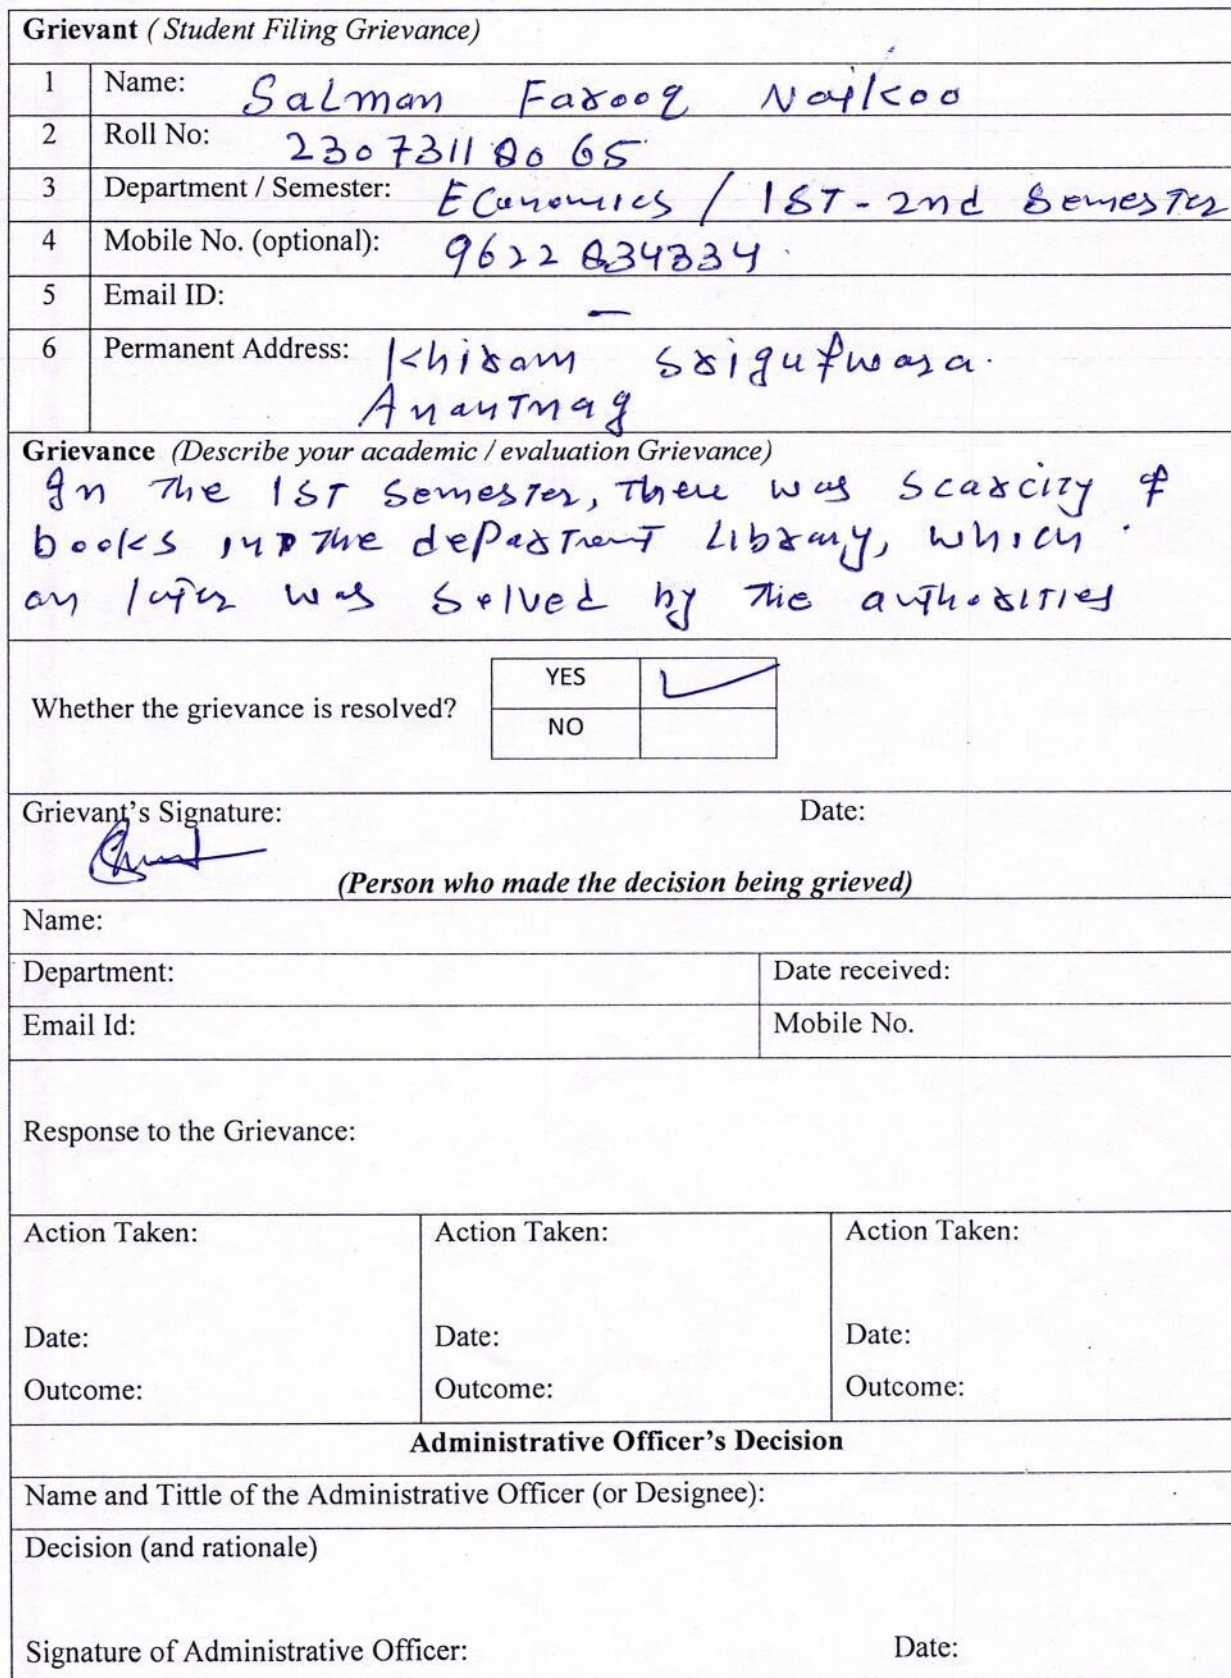 Grievant ( Student Filing Grievance)
1 Name: Salman Farooq Naikoo
2 Roll No: 230731180065
3 Department / Semester: Economics / 1ST - 2nd Semester
4 Mobile No. (optional): 9622834334
5 Email ID: —
6 Permanent Address: Khiram Srigufwara.
Anantnag
Grievance (Describe your academic / evaluation Grievance)
In the 1ST Semester, there was Scarcity of
books in the department Library, which
on later was Solved by the authorities
YES
Whether the grievance is resolved?
NO
Grievant's Signature: Date:
(Person who made the decision being grieved)
Name:
Department: Date received:
Email Id: Mobile No.
Response to the Grievance:
Action Taken: Action Taken: Action Taken:
Date: Date: Date:
Outcome: Outcome: Outcome:
Administrative Officer's Decision
Name and Tittle of the Administrative Officer (or Designee):
Decision (and rationale)
Signature of Administrative Officer: Date: